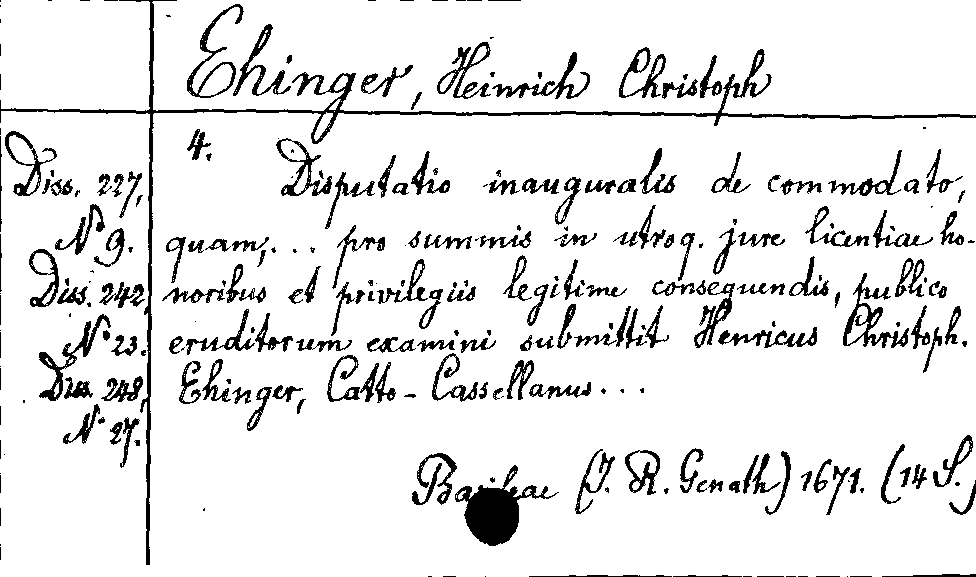 Ehinger, Heinrich Christoph
4.
Diss. 227,
N° 9.
Diss. 242,
N° 23.
Diss. 248,
N° 27.
Disputatio inauguralis de commodato,
quam,... pro summis in utroq. jure licentiae ho-
noribus et privilegiis legitime consequendis, publico
eruditorum examini submittit Henricus Christoph.
Ehinger, Catto-Cassellanus...
Basileae (J. R. Genath) 1671. (14 S.)